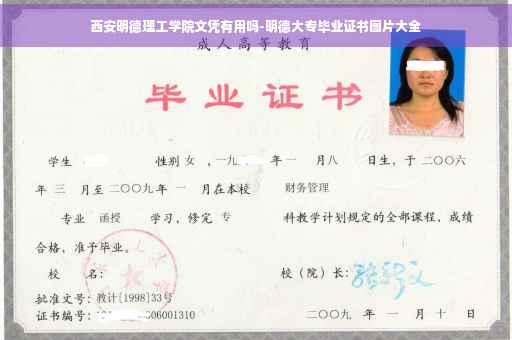 西安明德理工学院文凭有用吗-明德大专毕业证书图片大全
成人高等教育
毕业证书
学生 性别 女 ，一九 年 一 月八 日生，于 二〇〇六
年 三 月至 二〇〇九 年 一 月在本校 财务管理
专业 函授 学习，修完 专 科教学计划规定的全部课程，成绩
合格，准予毕业。
校 名： 校（院）长：
批准文号：教计[1998]33号
证书编号： 06001310 二〇〇九 年 一 月 十 日